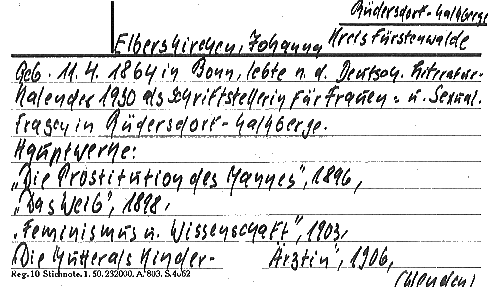 Rüdersdorf-Kalkberge
Elberskirchen, Johanna Kreis Fürstenwalde
Geb. 11.4.1864 in Bonn, lebte n. d. Deutsch. Literatur-
Kalender 1930 als Schriftstellerin für Frauen- u. Sexual.
fragen in Rüdersdorf-Kalkberge.
Hauptwerke:
„Die Prostitution des Mannes", 1896,
„Das Weib", 1898,
„Feminismus u. Wissenschaft", 1903,
Die Mutter als Kinder- Ärztin", 1906,
Reg. 10 Stichnote. 1. 50. 232000. A. 803. S. 4062
(Wenden)